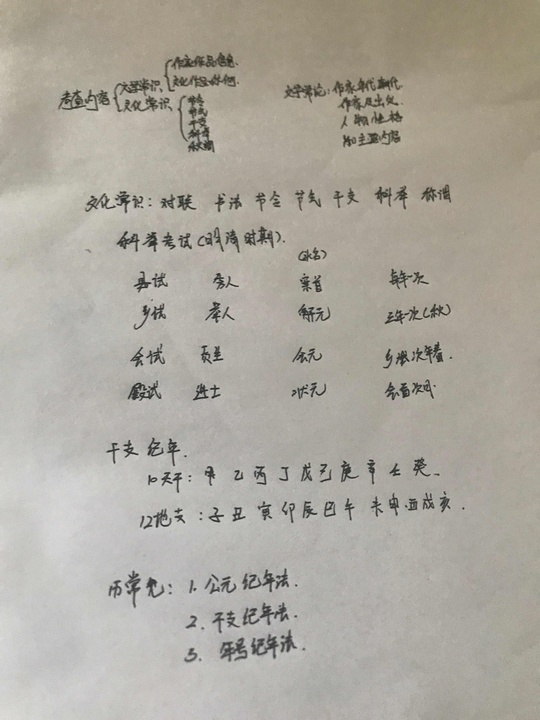 考查内容
文学常识
作家作品信息
文化作品体例
文化常识
节令
节气
干支
科举
称谓
文学常识：作家年代朝代
作家及出处
人物性格
和主要内容
文化常识：对联 书法 节令 节气 干支 科举 称谓
科举考试（明清时期）.
（第一名）
县试 秀人 案首 每年一次
乡试 举人 解元 三年一次（秋）
会试 贡生 会元 乡很次年春.
殿试 进士 状元 会面次月
干支纪年.
10天干：甲 乙 丙 丁 戊 己 庚 辛 壬 癸
12地支：子 丑 寅 卯 辰 巳 午 未 申 酉 戌 亥.
历常见：1. 公元纪年法.
2. 干支纪年法.
3. 年号纪年法.